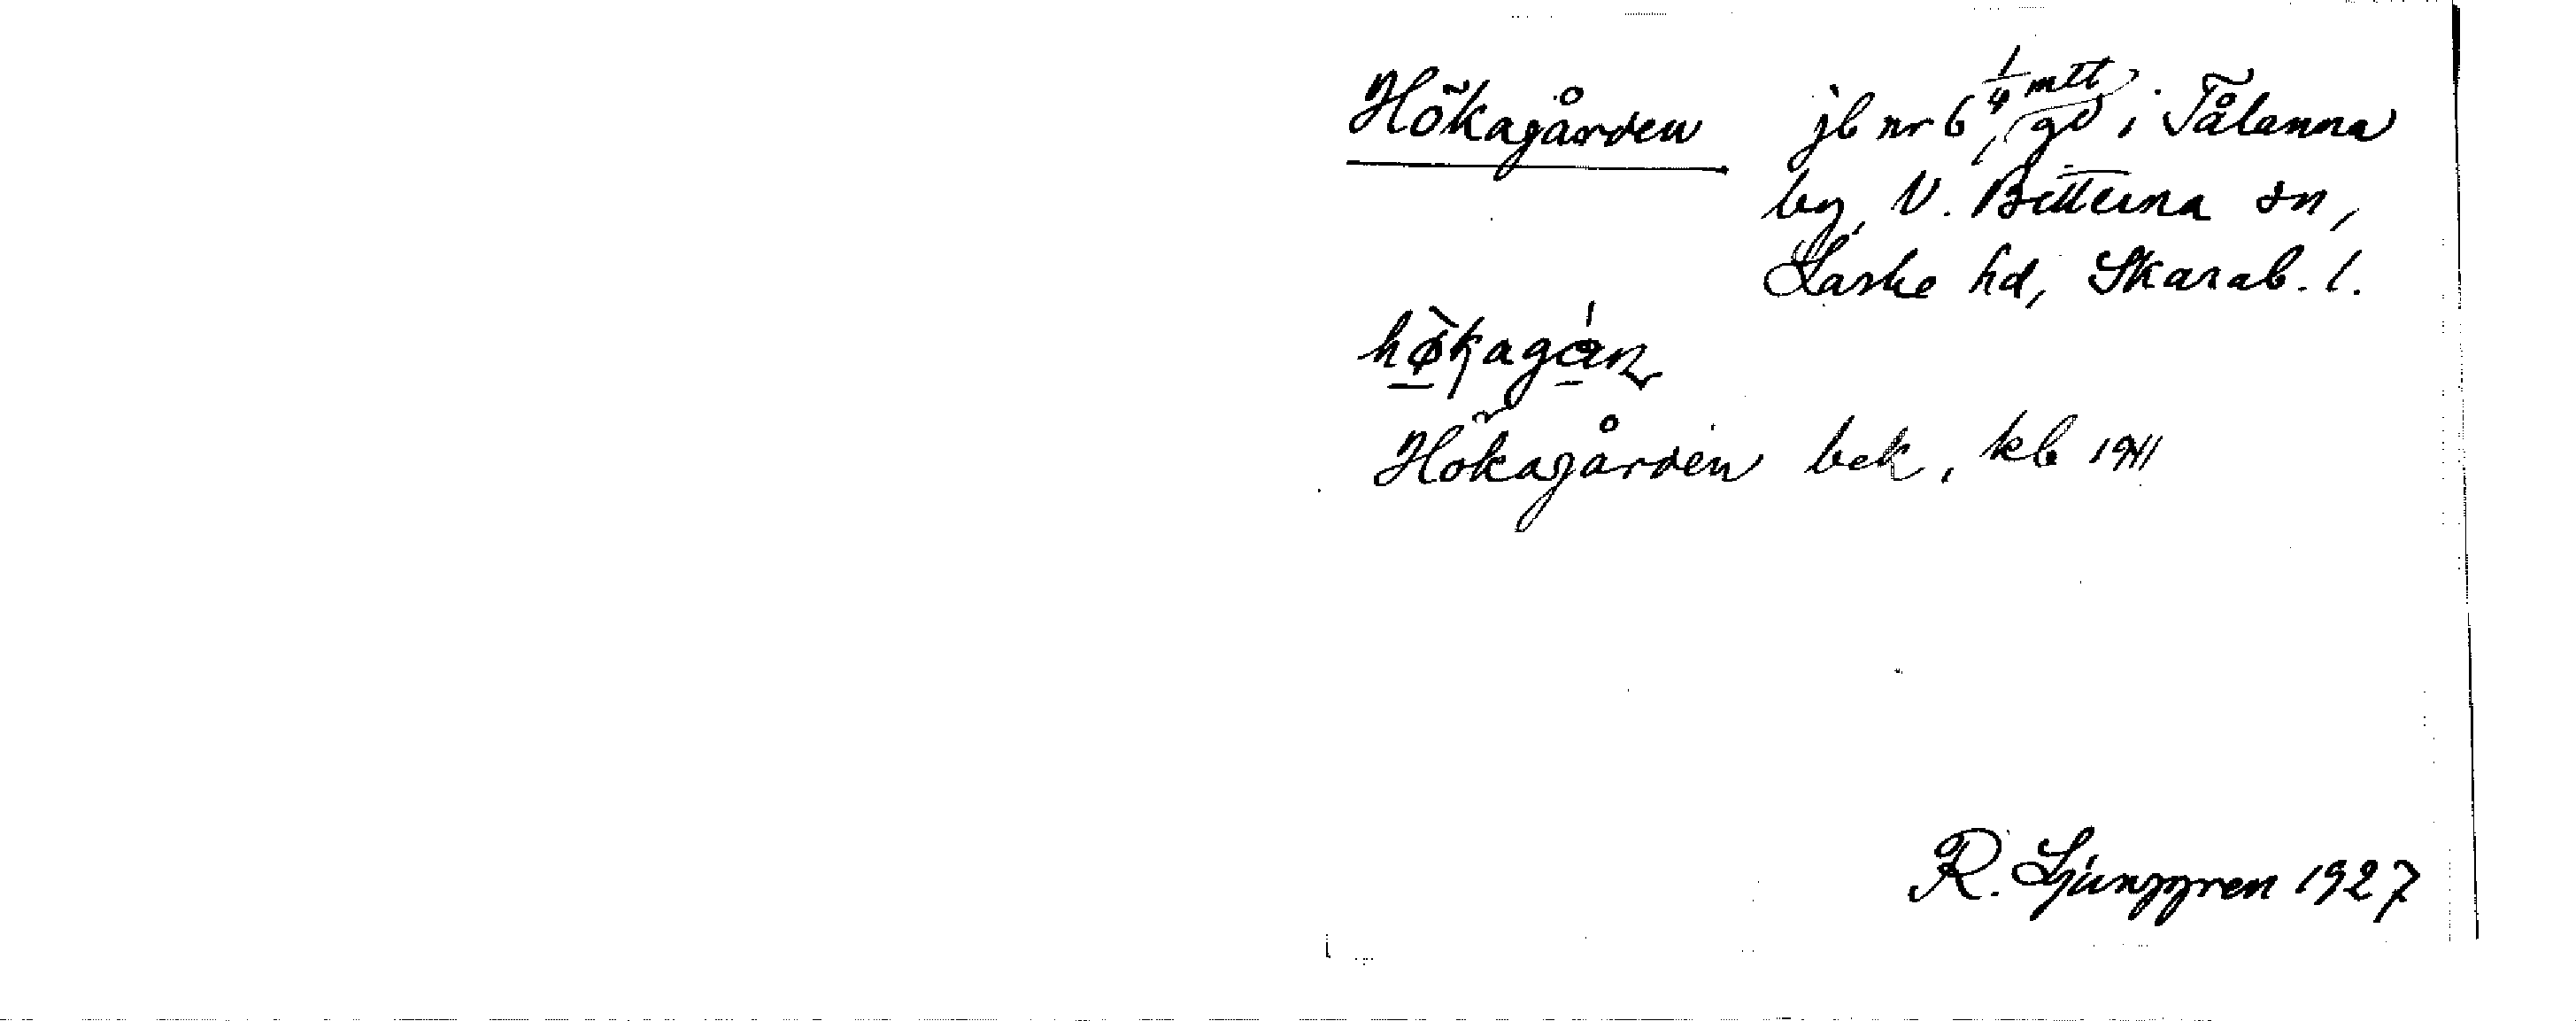 Hökagården jb nr 6 1/4 mtl, gd i Tålanna
by, N. Bitterna sn,
Laske hd, Skarab. l.
Hökagården bek, kb 1911
R. Ljunggren 1927